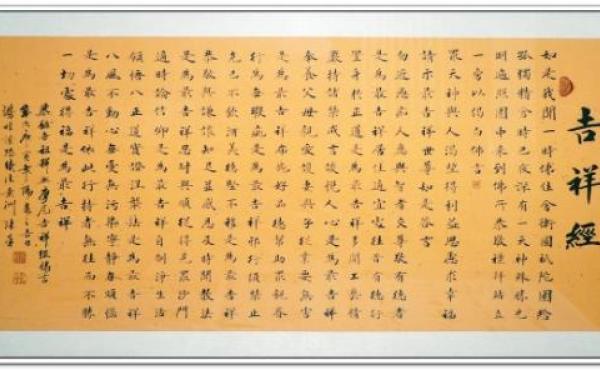 吉祥經
如是我聞一時佛住舍衛國祇陀園給
孤獨精舍時已夜深有一天神殊勝光
明遍照園中來到佛所恭敬禮拜站立
一旁以偈白佛言
眾天神與人渴望得利益思慮求幸福
請示最吉祥世尊如是答言
勿近愚痴人應與智者交尊敬有德者
是為最吉祥居住適宜處往昔有德行
置身於正道是為最吉祥多聞工藝精
嚴持諸禁戒言談悅人心是為最吉祥
奉養父母親愛護妻與子從業要無害
是為最吉祥布施好品德幫助眾親眷
行為無瑕疵是為最吉祥邪行須禁止
克己不飲酒美德堅不移是為最吉祥
恭敬與謙讓知足並感恩及時聞教法
是為最吉祥忍耐與順從得見眾沙門
適時論信仰是為最吉祥自制淨生活
領悟八正道實證涅槃法是為最吉祥
八風不動心無憂無污染寧靜無煩惱
是為最吉祥依此行持者無往而不勝
一切處得福是為最吉祥